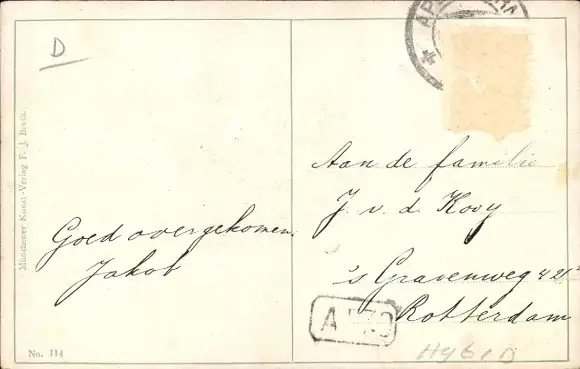 D
Münchener Kunst-Verlag F. J. Bruth.
Goed overgekomen.
Jakob
No. 114
Aan de familie
J. v. d. Kooy
's Gravenweg 421
Rotterdam